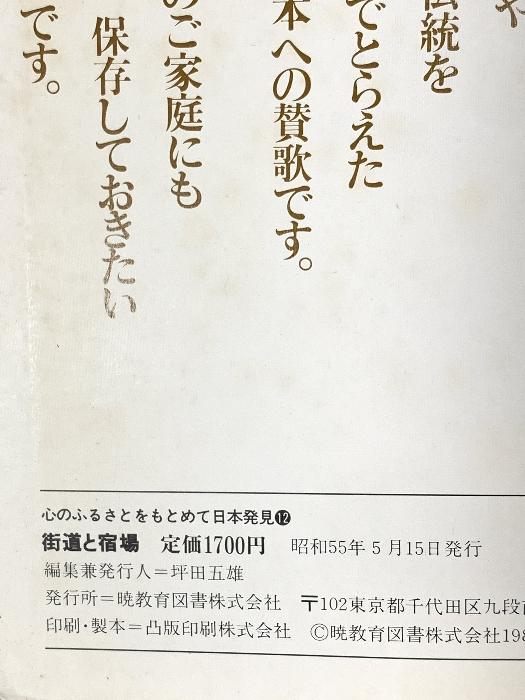 や
伝統を
でとらえた
本への賛歌です。
のご家庭にも
保存しておきたい
です。
心のふるさとをもとめて日本発見⓬
街道と宿場 定価1700円 昭和55年5月15日発行
編集兼発行人＝坪田五雄
発行所＝暁教育図書株式会社 〒102東京都千代田区九段南
印刷・製本＝凸版印刷株式会社 ©暁教育図書株式会社198